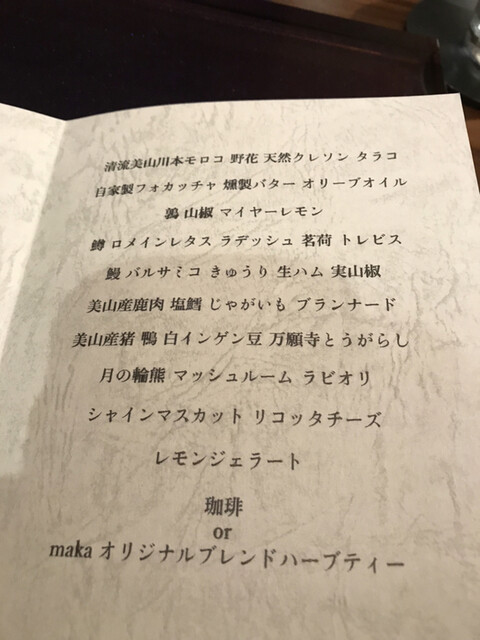 清流美山川本モロコ 野花 天然クレソン タラコ
自家製フォカッチャ 燻製バター オリーブオイル
鶉 山椒 マイヤーレモン
鱒 ロメインレタス ラデッシュ 茗荷 トレビス
鰻 バルサミコ きゅうり 生ハム 実山椒
美山産鹿肉 塩鱈 じゃがいも ブランナード
美山産猪 鴨 白インゲン豆 万願寺とうがらし
月の輪熊 マッシュルーム ラビオリ
シャインマスカット リコッタチーズ
レモンジェラート
珈琲
or
maka オリジナルブレンドハーブティー